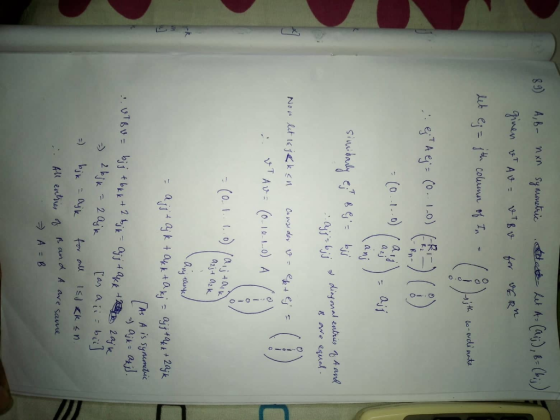 89) A, B - nxn symmetric. Let A = (aij), B = (bij)
given vᵀAv = vᵀBv for v∈ℝⁿ
Let ej = jth column of In = (0 : 1 : 0) → jth co-ordinate
∴ ejᵀ A ej = (0..1..0) (-R1- : -Rn-) (0 1 0)
= (0..1..0) (a1j : ajj : anj) = ajj
Similarly ejᵀ B ej = bjj
∴ ajj = bjj ⇒ diagonal entries of A and B are equal.
Now let 1≤j<k≤n consider v = ek + ej = (0 : 1 : 1 : 0)
∴ vᵀAv = (0..1..1..0) A (0 : 1 : 1 : 0)
= (0..1..1..0) (a1j + a1k : anj + ank)
= ajj + ajk + akj + akk = ajj + akk + 2ajk
[As A is symmetric ⇒ ajk = akj]
∴ vᵀBv = bjj + bkk + 2bjk = ajj + akk + 2ajk
⇒ 2bjk = 2ajk [as ajj = bjj]
⇒ bjk = ajk for all 1≤j<k≤n
∴ All entries of B and A are same
⇒ A = B